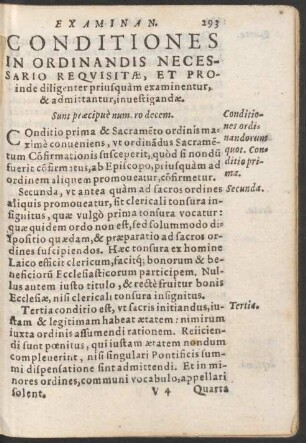 EXAMINAN. 293
CONDITIONES
IN ORDINANDIS NECES-
SARIO REQVISITÆ, ET PRO-
inde diligenter priusquàm examinentur,
& admittantur, inuestigandæ.
Sunt præcipuè num. ro decem.
Conditio-
nes ordi-
nandorum
quot. Con-
ditio pri-
ma.
COnditio prima & Sacramēto ordinis ma-
ximè conueniens, vt ordinādus Sacramē-
tum Cōfirmationis susceperit, quòd si nondū
fuerit cōfirmatus, ab Episcopo, priusquàm ad
ordinem aliquem promoueatur, cōfirmetur.
Secunda, vt antea quàm ad sacros ordines
Secunda.
aliquis promoueatur, sit clericali tonsura in-
signitus, quæ vulgò prima tonsura vocatur:
quæ quidem ordo non est, sed solummodo di-
spositio quædam, & præparatio ad sacros or-
dines suscipiendos. Hæc tonsura ex homine
Laico efficit clericum, facitq; bonorum & be-
neficiorū Ecclesiasticorum participem. Nul-
lus autem iusto titulo, & rectè fruitur bonis
Ecclesiæ, nisi clericali tonsura insignitus.
Tertia conditio est, vt sacris initiandus, iu-
Tertia.
stam & legitimam habeat ætatem: nimirum
iuxta ordinis assumendi rationem. Reiicien-
di sunt pœnitus, qui iustam ætatem nondum
compleuerint, nisi singulari Pontificis sum-
mi dispensatione sint admittendi. Et in mi-
nores ordines, communi vocabulo, appellari
solent. V 4 Quarta